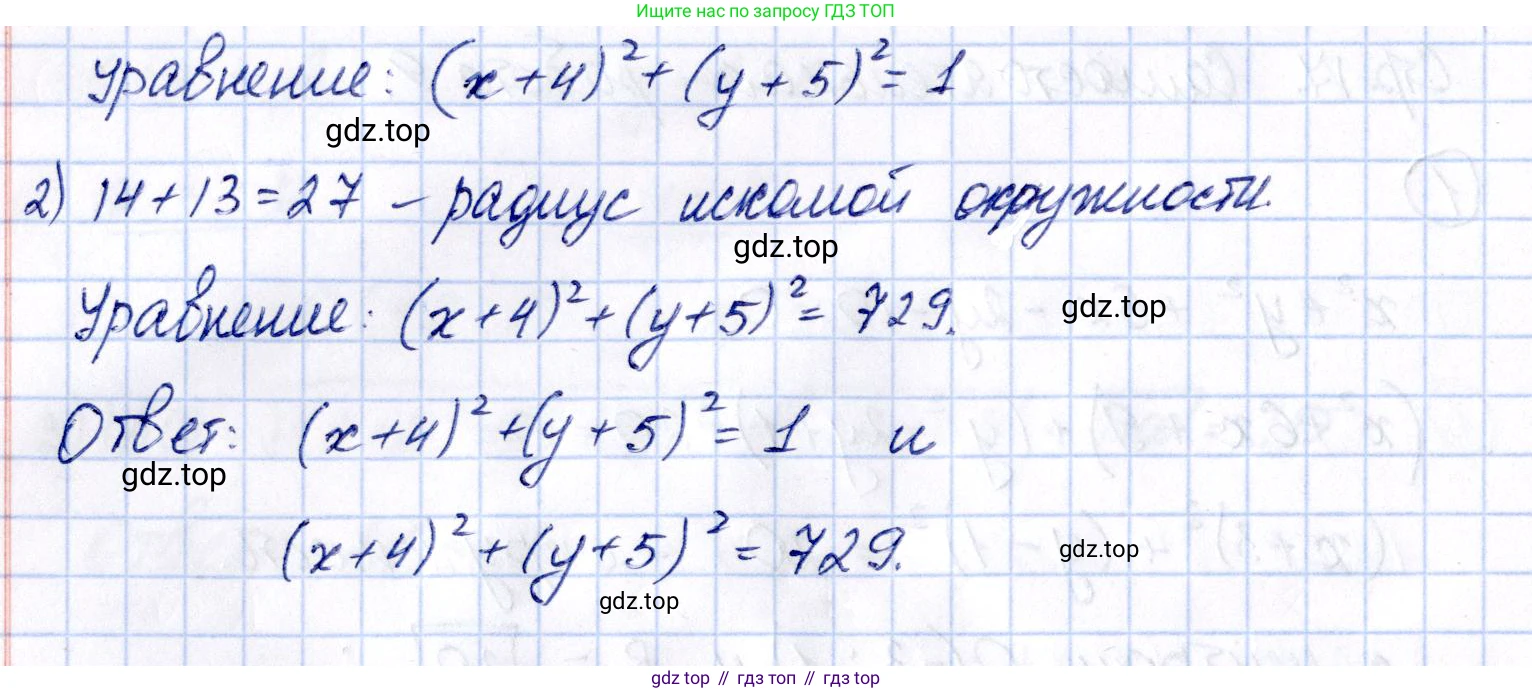 Ищите нас по запросу ГДЗ ТОП
Уравнение: (x+4)² + (y+5)² = 1
gdz.top
2) 14+13=27 – радиус искомой окружности.
gdz.top
Уравнение: (x+4)² + (y+5)² = 729.
gdz.top
Ответ: (x+4)² + (y+5)² = 1 и
gdz.top
(x+4)² + (y+5)² = 729.
gdz.top
gdz.top
gdz.top // гдз топ // гдз top